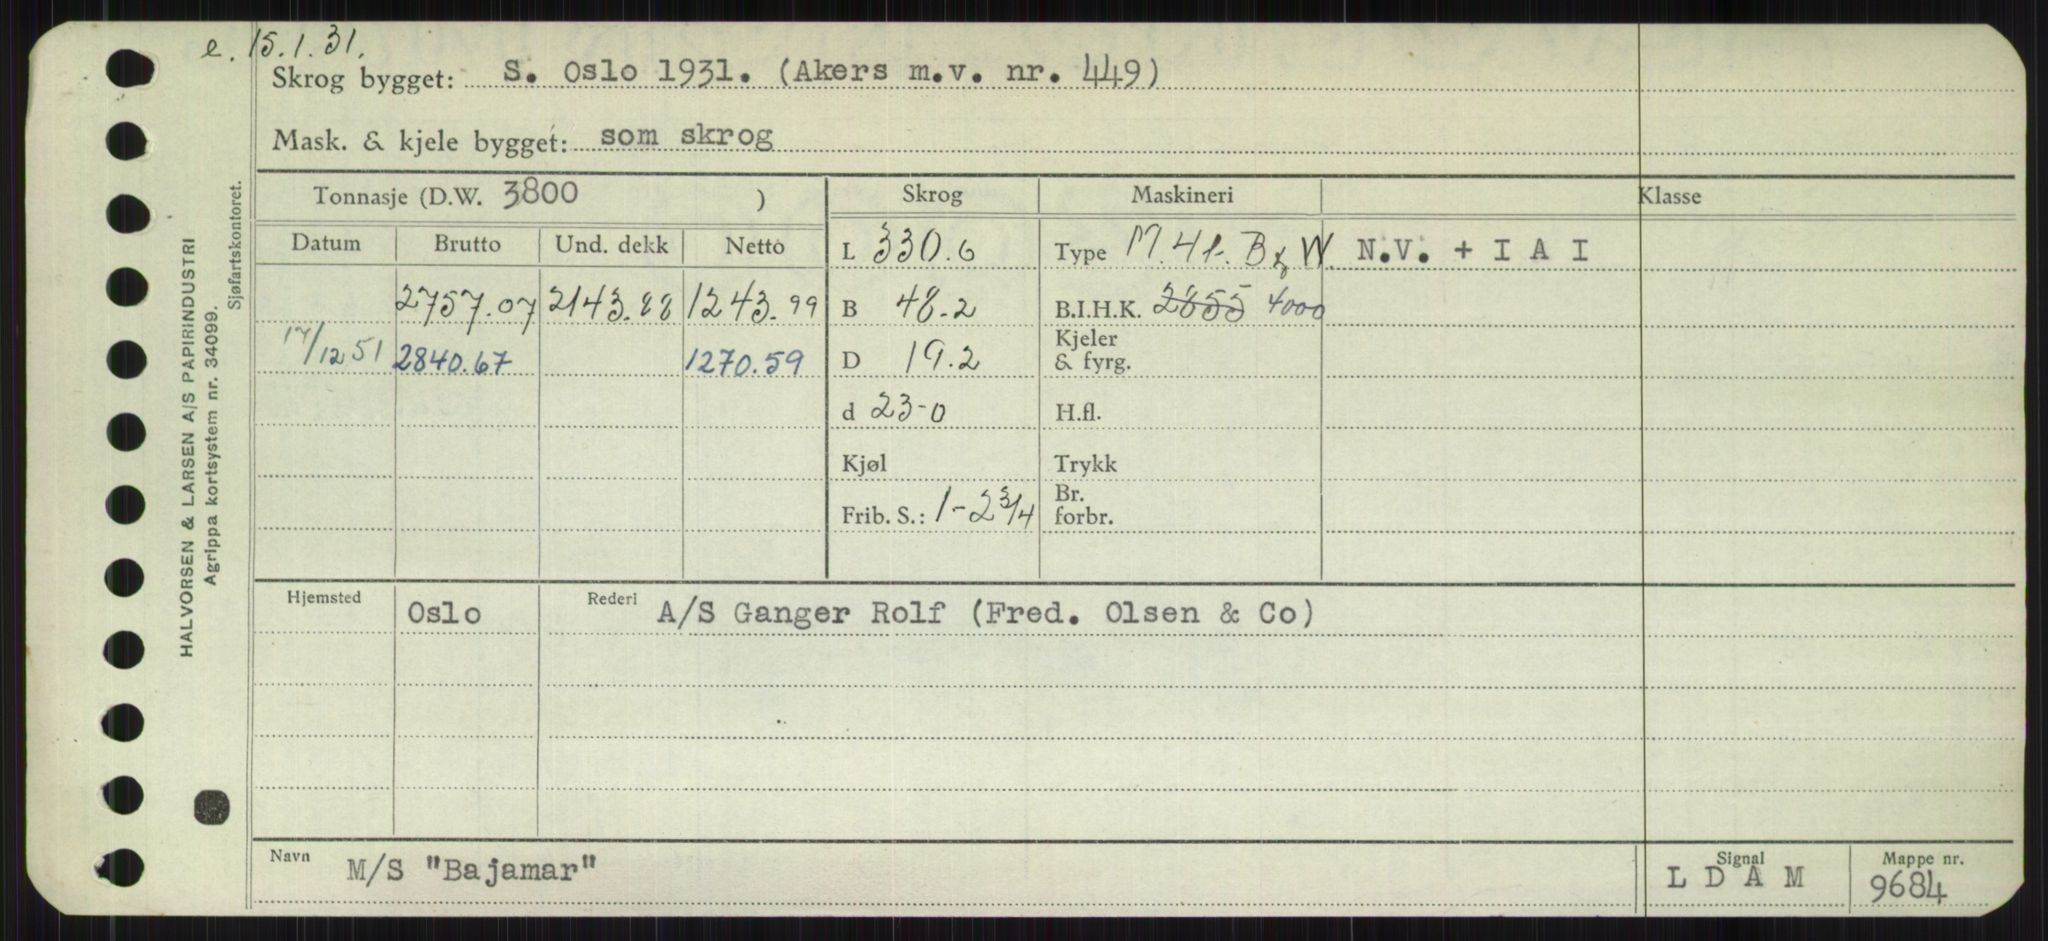 e. 15.1.31.
Skrog bygget: S. Oslo 1931. (Akers m.v. nr. 449)
Mask. & kjele bygget: som skrog
Tonnasje (D.W. 3800 ) Skrog Maskineri Klasse
Datum Brutto Und. dekk Netto L 330.6 Type M. 4t. B & W. N.V. + I A I
2757.07 2143.88 1243.99 B 48.2 B.I.H.K. 2855 4000
17/12 51 2840.67 1270.59 D 19.2 Kjeler & fyrg.
d 23-0 H.fl.
Kjøl Trykk
Frib. S.: 1-2 3/4 Br. forbr.
Hjemsted Oslo Rederi A/S Ganger Rolf (Fred. Olsen & Co)
Navn M/S "Bajamar" Signal L D A M Mappe nr. 9684
HALVORSEN & LARSEN A/S PAPIRINDUSTRI
Agrippa kortsystem nr. 34099.
Sjøfartskontoret.